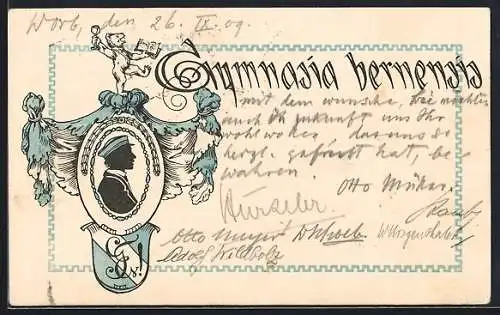 Worb, den 26. IX. 09.
Gymnasia bernensis
mit dem wunsche, Sie möchten
auch in zukunft uns Ihr
wohlwollen, das uns so
herzl. gefreut hat, be
wahren.
Otto Müller
Hurzeler
Otto Meyer
Adolf Kildbolz